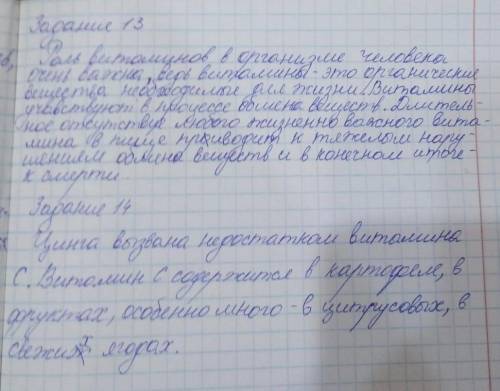 Задание 13
Роль витаминов в организме человека
очень важна, ведь витамины - это органические
вещества необходимые для жизни. Витамины
учавствуют в процессе обмена веществ. Длитель-
ное отсутствие любого жизненно важного вита-
мина в пище приводит к тяжелым нару-
шениям обмена веществ и в конечном итоге -
к смерти
Задание 14
Цинга вызвана недостатком витамина
С. Витамин С содержится в картофеле, в
фруктах, особенно много - в цитрусовых, в
свежих ягодах.